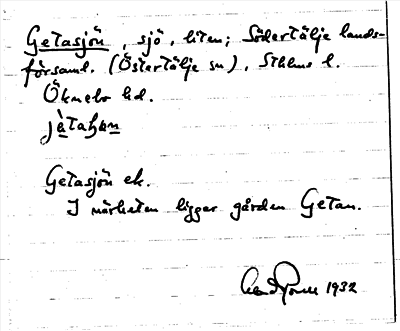 Getasjön, sjö, liten; Södertälje lands-
församl. (Östertälje sn), Sthlms l.
Öknebo hd.
jètahɷn
Getasjön ek.
I närheten ligger gården Getan.
1932